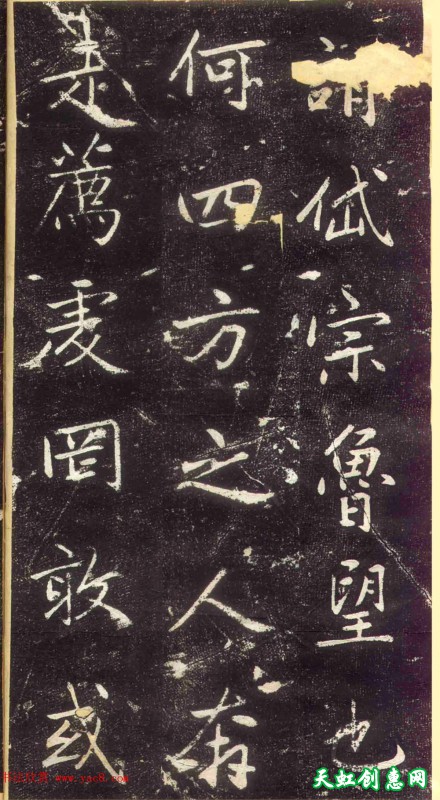 謂岱宗魯望也
何四方之人
是薦虔罔敢或
书法欣赏 www.yac8.com
天虹创惠网